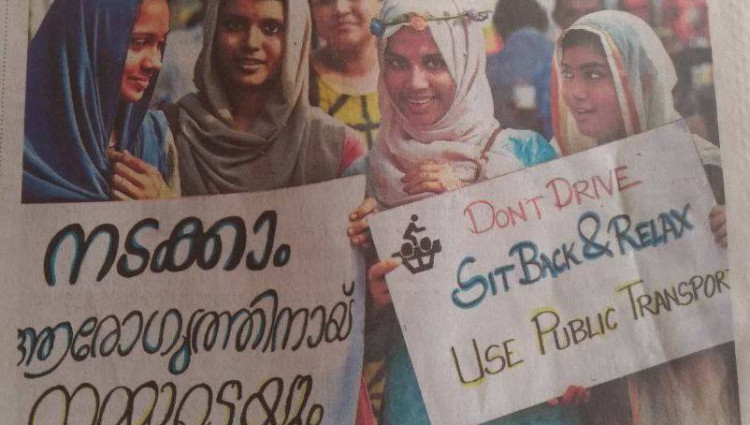 നടക്കാം
ആരോഗ്യത്തിനായ്
നമ്മുടെയും
DON'T DRIVE
SIT BACK & RELAX
USE PUBLIC TRANSPOR